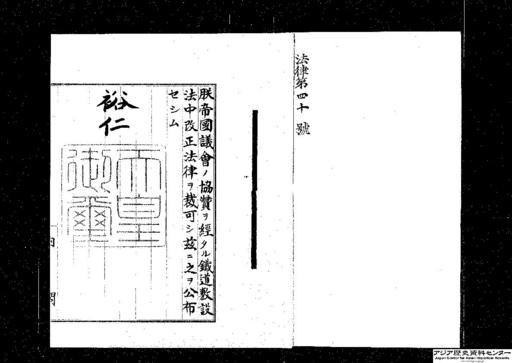 法律第四十號
朕帝國議會ノ協賛ヲ經タル鐵道敷設
法中改正法律ヲ裁可シ茲ニ之ヲ公布
セシム
裕仁
天皇
御璽
内閣
アジア歴史資料センター
Japan Center for Asian Historical Records